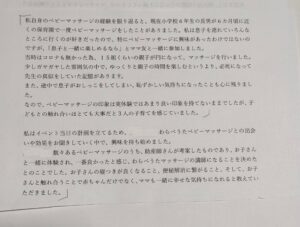 私自身のベビーマッサージの経験を振り返ると、現在小学校６年生の長男がもた月頃に近
くの保育園で一度ベビーマッサージをしたことがありました。私は息子を連れていろんな
ところに行くのが好きだったので、特にベビーマッサージに興味があったわけではない
のですが、「息子と一緒に楽しめるなら」とママ友と一緒に参加しました。
当時はコロナも無かった為、１５組くらいの親子が円になって、マッサージを行いました。
少しガヤガヤした雰囲気の中で、ゆっくりと親子の時間を楽しむというより、必死になって
先生の真似をしていた記憶があります。
また、途中で息子がおしっこをしてしまい、恥ずかしい気持ちになったことも心に残りま
した。
なので、ベビーマッサージの印象は実体験ではあまり良い印象を持てないままでしたが、子
どもとの触れ合いはとても大事だと３人の子育てで感じていました。
私はイベント当日の計画を立てるため、 わらべうたマッサージとの出会
いや効果をお聞きしていく中で、興味を持ち始めました。
数々あるベビーマッサージのうち、助産師さんが考案したものであり、お子さん
と一緒に体験され、一番良かったと感じ、わらべうたマッサージの講師になることを決めた
とのことでした。お子さんの寝つきが良くなること、便秘解消に繋がること、そして、お子
さんと触れ合うことで赤ちゃんだけでなく、ママも一緒に幸せな気持ちになれると教えてい
ただきました。